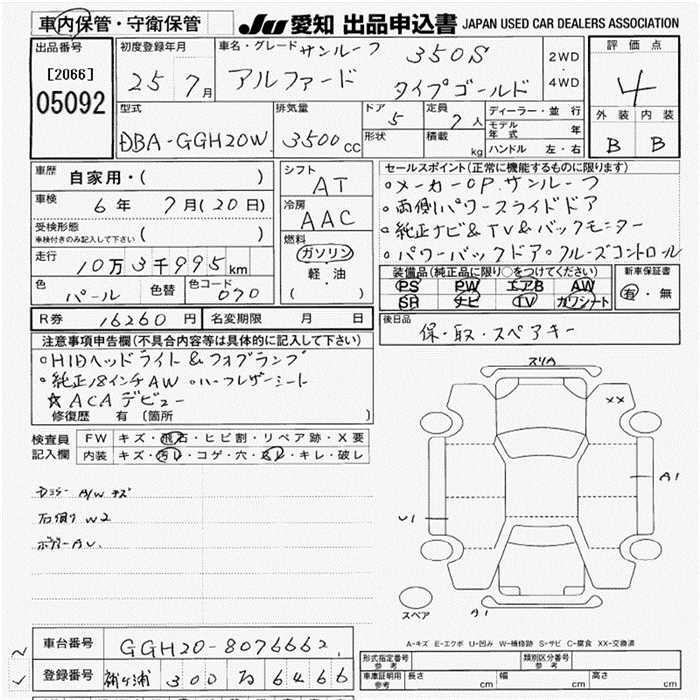 車内保管・守衛保管 JU 愛知 出品申込書 JAPAN USED CAR DEALERS ASSOCIATION
出品番号 初度登録年月 車名・グレード サンルーフ 350S 2WD・4WD 評価点
[2066] 25 7月 アルファード タイプゴールド 4
05092 型式 排気量 ドア 5 定員 7人 ディーラー・並行 外装 内装
DBA-GGH20W 3500cc 形状 積載 kg モデル年式 年 B B
ハンドル 左・右
車歴 自家用・( ) シフト AT セールスポイント(正常に機能するものに限り)
車検 6年 7月(20日) 冷房 AAC 。メーカーOP.サンルーフ
受検形態 車検付きのみ記入して下さい ( ) 。両側パワースライドドア
燃料 ガソリン 。純正ナビ&TV&バックモニター
走行 10万3千995km 軽・油 。パワーバックドア・クルーズコントロール
色 パール 色替 色コード 070 ( ) 装備品(純正品に限り○をつけてください) 新車保証書
PS PW エアB AW 有・無
SR ナビ TV カワシート
R券 16260円 名変期限 月 日 後日品
保・取・スペアキー
注意事項申告欄(不具合内容等は具体的に記入して下さい)
。HIDヘッドライト&フォグランプ
。純正18インチAW 。ハーフレザーシート
☆ACAデビュー
修復歴 有 〔箇所 〕
検査員記入欄 FW キズ・飛石・ヒビ割・リペア跡・X要
内装 キズ・汚レ・コゲ・穴・スレ・キレ・破レ
A/W キズ
右側リ W2
スリA
××
A1
U1
スペア A1
A-キズ E-エクボ U-凹み W-補修跡 S-サビ C-腐食 XX-交換済
車台番号 GGH20-8076662
登録番号 袖ヶ浦 300 6466
形式指定番号 参考 類別区分番号 参考
車庫証明用 参考 長さ cm 幅 cm 高さ cm